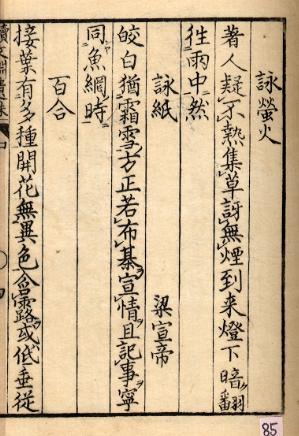 詠螢火
著人疑不熱集草訝無煙到来燈下暗翻
往雨中然
詠紙　梁宣帝
皎白猶霜雪方正若布棊宣情且記事寧
同魚網時
百合
接葉有多種開花無異色含露或低垂從
85